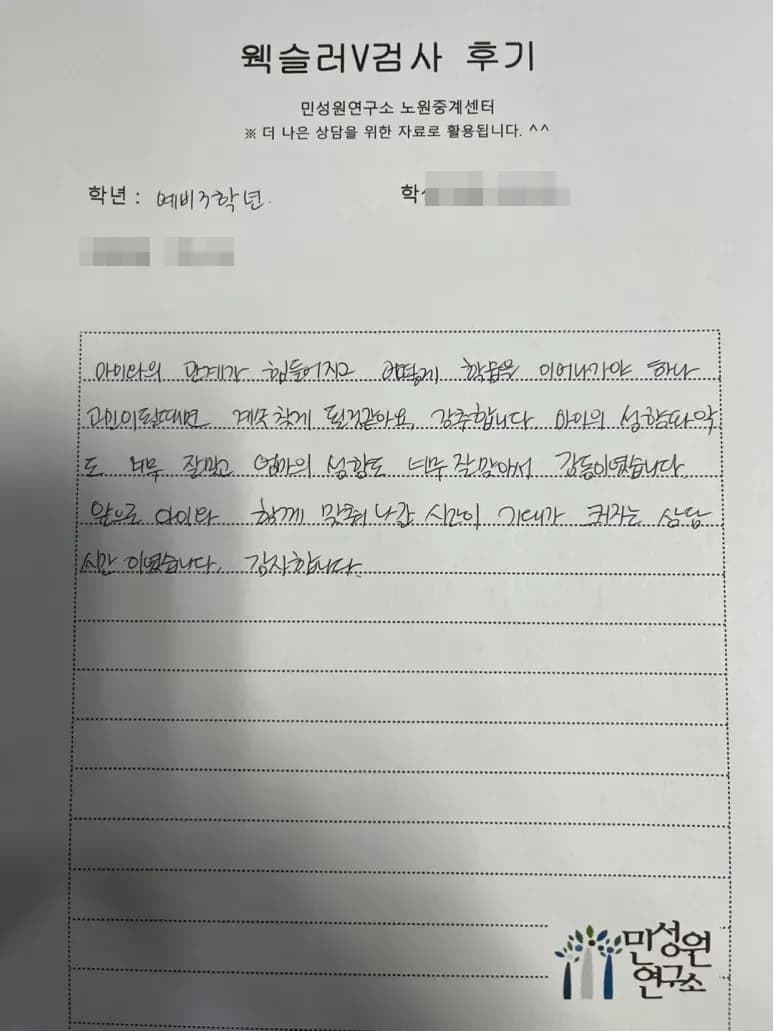 웩슬러V검사 후기
민성원연구소 노원중계센터
※ 더 나은 상담을 위한 자료로 활용됩니다. ^^
학년 : 예비3학년.
학
아이와의 관계가 힘들어지고 어떻게 학습을 이어나가야 하나
고민이될때면 계속 찾게 될것같아요. 강추합니다. 아이의 성향파악
도 너무 잘맞고 엄마의 성향도 너무 잘맞아서 감동이였습니다.
앞으로 아이와 함께 맞춰 나갈 시간이 기대가 커지는 상담
시간 이였습니다. 감사합니다.
민성원
연구소